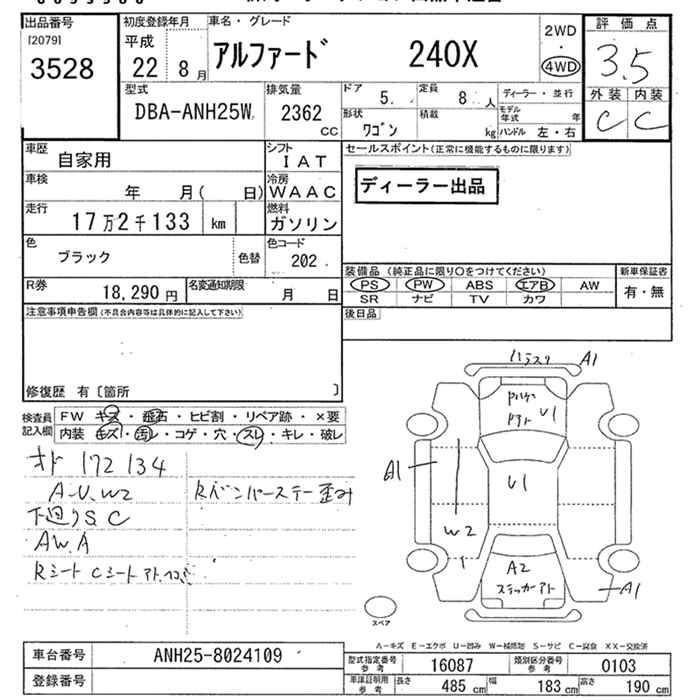 出品番号
[2079]
3528
初度登録年月
平成
22年 8月
車名・グレード
アルファード 240X
2WD
・
4WD
評価点
3.5
外装 内装
C C
型式
DBA-ANH25W
排気量
2362
CC
ドア
5.
定員
8人
ディーラー・並行
形状
ワゴン
積載
kg
モデル年式 年
ハンドル 左・右
車歴
自家用
シフト
IAT
車検
年 月( 日)
冷房
WAAC
走行
17万2千133 km
燃料
ガソリン
色
ブラック
色替
色コード
202
R券
18,290円
名変通知期限
月 日
セールスポイント(正常に機能するものに限ります)
ディーラー出品
装備品(純正品に限り〇をつけてください)
PS PW ABS エアB AW
SR ナビ TV カワ
新車保証書
有・無
後日品
注意事項申告欄(不具合内容等は具体的に記入して下さい)
修復歴 有〔箇所 〕
検査員記入欄
FW キズ・飛石・ヒビ割・リペア跡・×要
内装 キズ・汚レ・コゲ・穴・スレ・キレ・破レ
オド 172134
A-U.W2
Rバンパーステー歪み
下廻りS.C
AW.A
A1
U1
A1
U1
W2
A2
ステッカーアト
A1
スペア
A-キズ E-エクボ U-凹み W-補修跡 S-サビ C-腐食 XX-交換済
車台番号 ANH25-8024109
登録番号
型式指定番号参考 16087
類別区分番号参考 0103
車庫証明用参考
長さ 485cm
幅 183cm
高さ 190cm